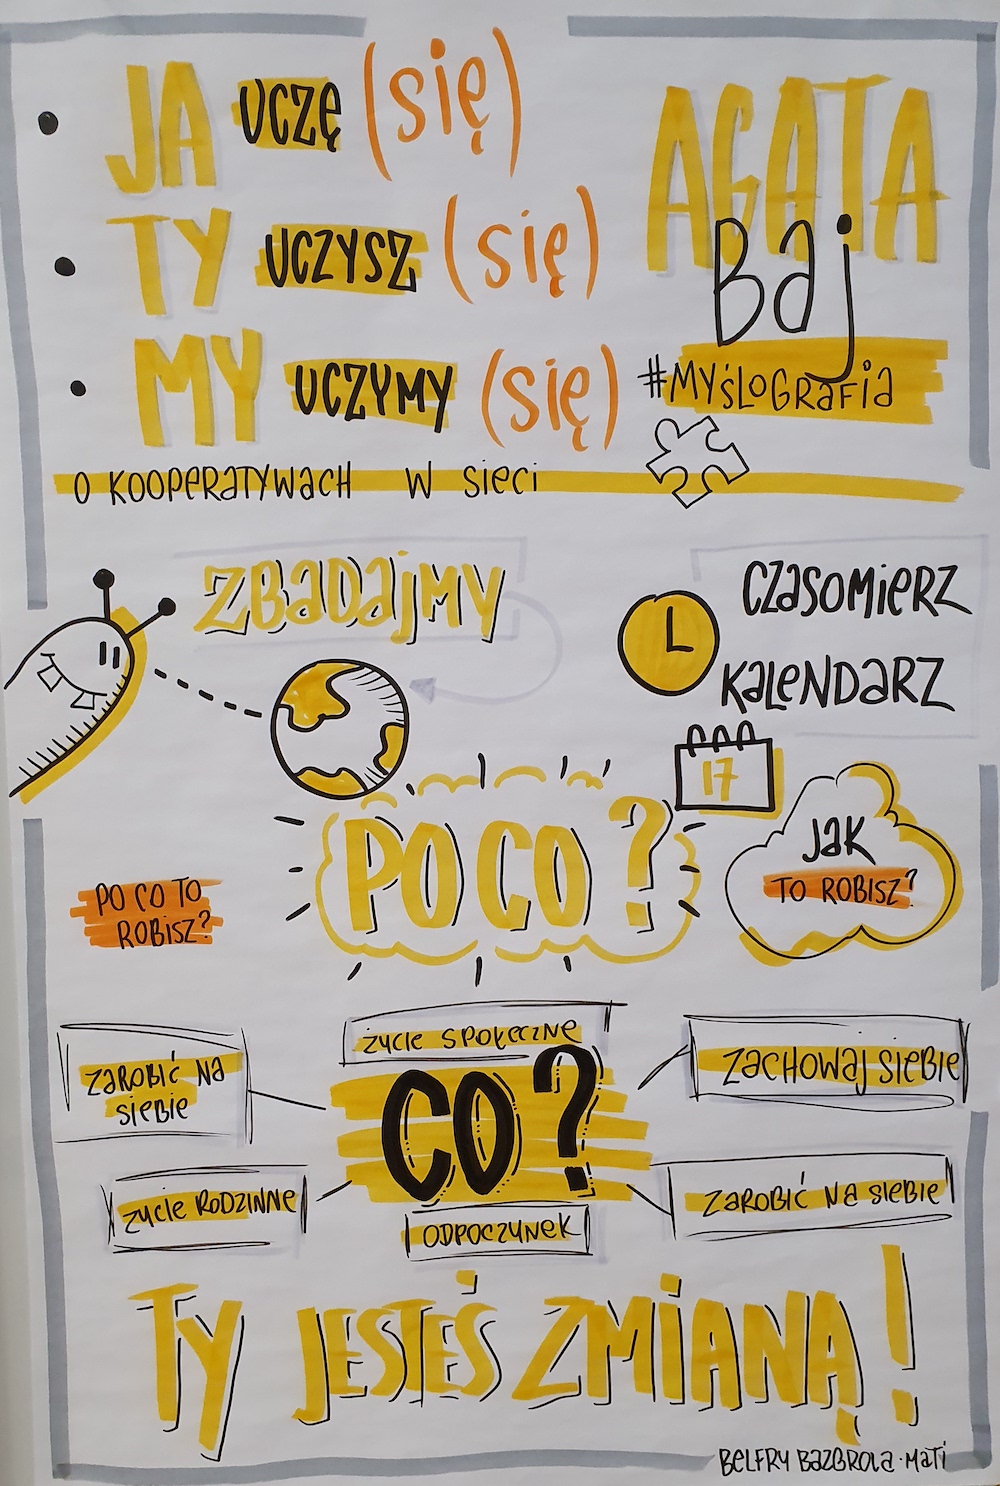 JA UCZĘ (SIĘ)
TY UCZYSZ (SIĘ)
MY UCZYMY (SIĘ)
AGATA
BAJ
#MYŚLOGRAFIA
O KOOPERATYWACH W SIECI
ZBADAJMY
CZASOMIERZ
KALENDARZ
17
PO CO?
PO CO TO
ROBISZ?
JAK
TO ROBISZ?
ŻYCIE SPOŁECZNE
ZAROBIĆ NA
SIEBIE
CO?
ZACHOWAJ SIEBIE
ŻYCIE RODZINNE
ODPOCZYNEK
ZAROBIĆ NA SIEBIE
TY JESTEŚ ZMIANĄ!
BELFRY BAZGROLĄ · MATI